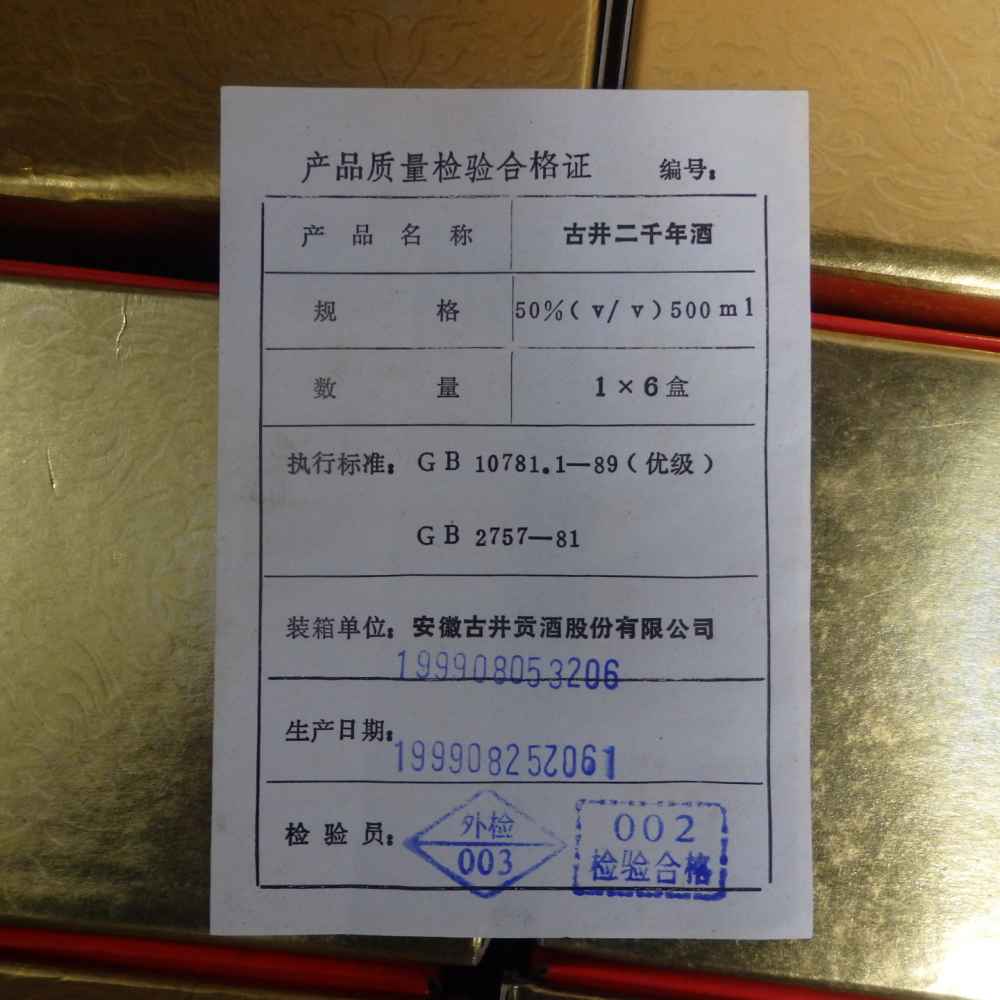 产品质量检验合格证 编号:
产品名称 古井二千年酒
规格 50%(v/v)500ml
数量 1×6盒
执行标准: GB 10781.1—89(优级)
GB 2757—81
装箱单位: 安徽古井贡酒股份有限公司
199908053206
生产日期:
199908252061
检验员: 外检 002
003 检验合格